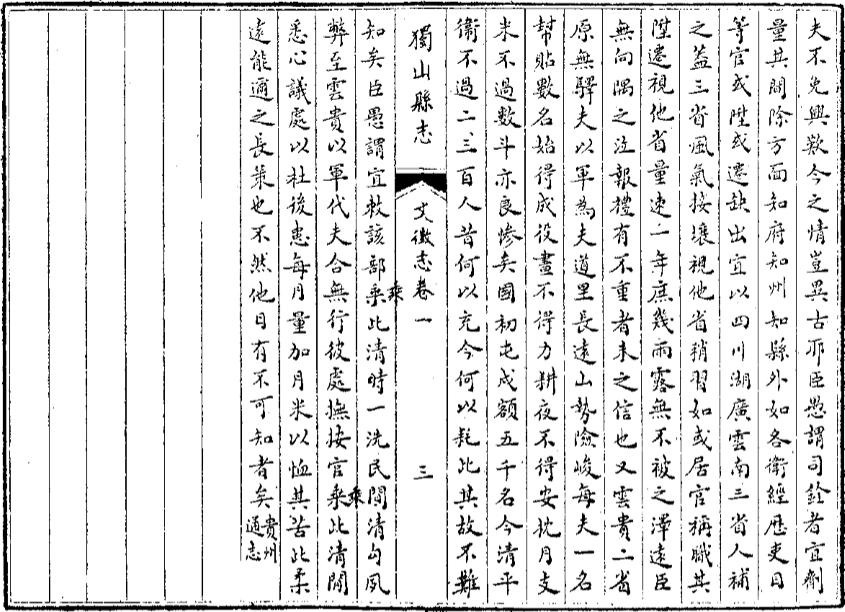 夫不免興歎今之情豈異古耶臣愚謂司銓者宜劑
量其間除方面知府知州知縣外如各衛經歷吏目
等官或陞或遷缺出宜以四川湖廣雲南三省人補
之蓋三省風氣接壤視他省稍習如或居官稱職其
陞遷視他省量速一年庶幾雨露無不被之澤遠臣
無向隅之泣報禮有不重者未之信也又雲貴二省
原無驛夫以軍為夫道里長遠山勢險峻每夫一名
幫貼數名始得成役晝不得力耕夜不得安枕月支
米不過數斗亦良慘矣國初屯戍額五千名今清平
衞不過二三百人昔何以充今何以耗此其故不難
獨山縣志
文徵志卷一
三
知矣臣愚謂宜敕該部乘此清時一洗民間清勾夙
弊至雲貴以軍代夫合無行彼處撫按官乘此清閒
悉心議處以杜後患每月量加月米以恤其苦此柔
遠能邇之長策也不然他日有不可知者矣貴州
通志